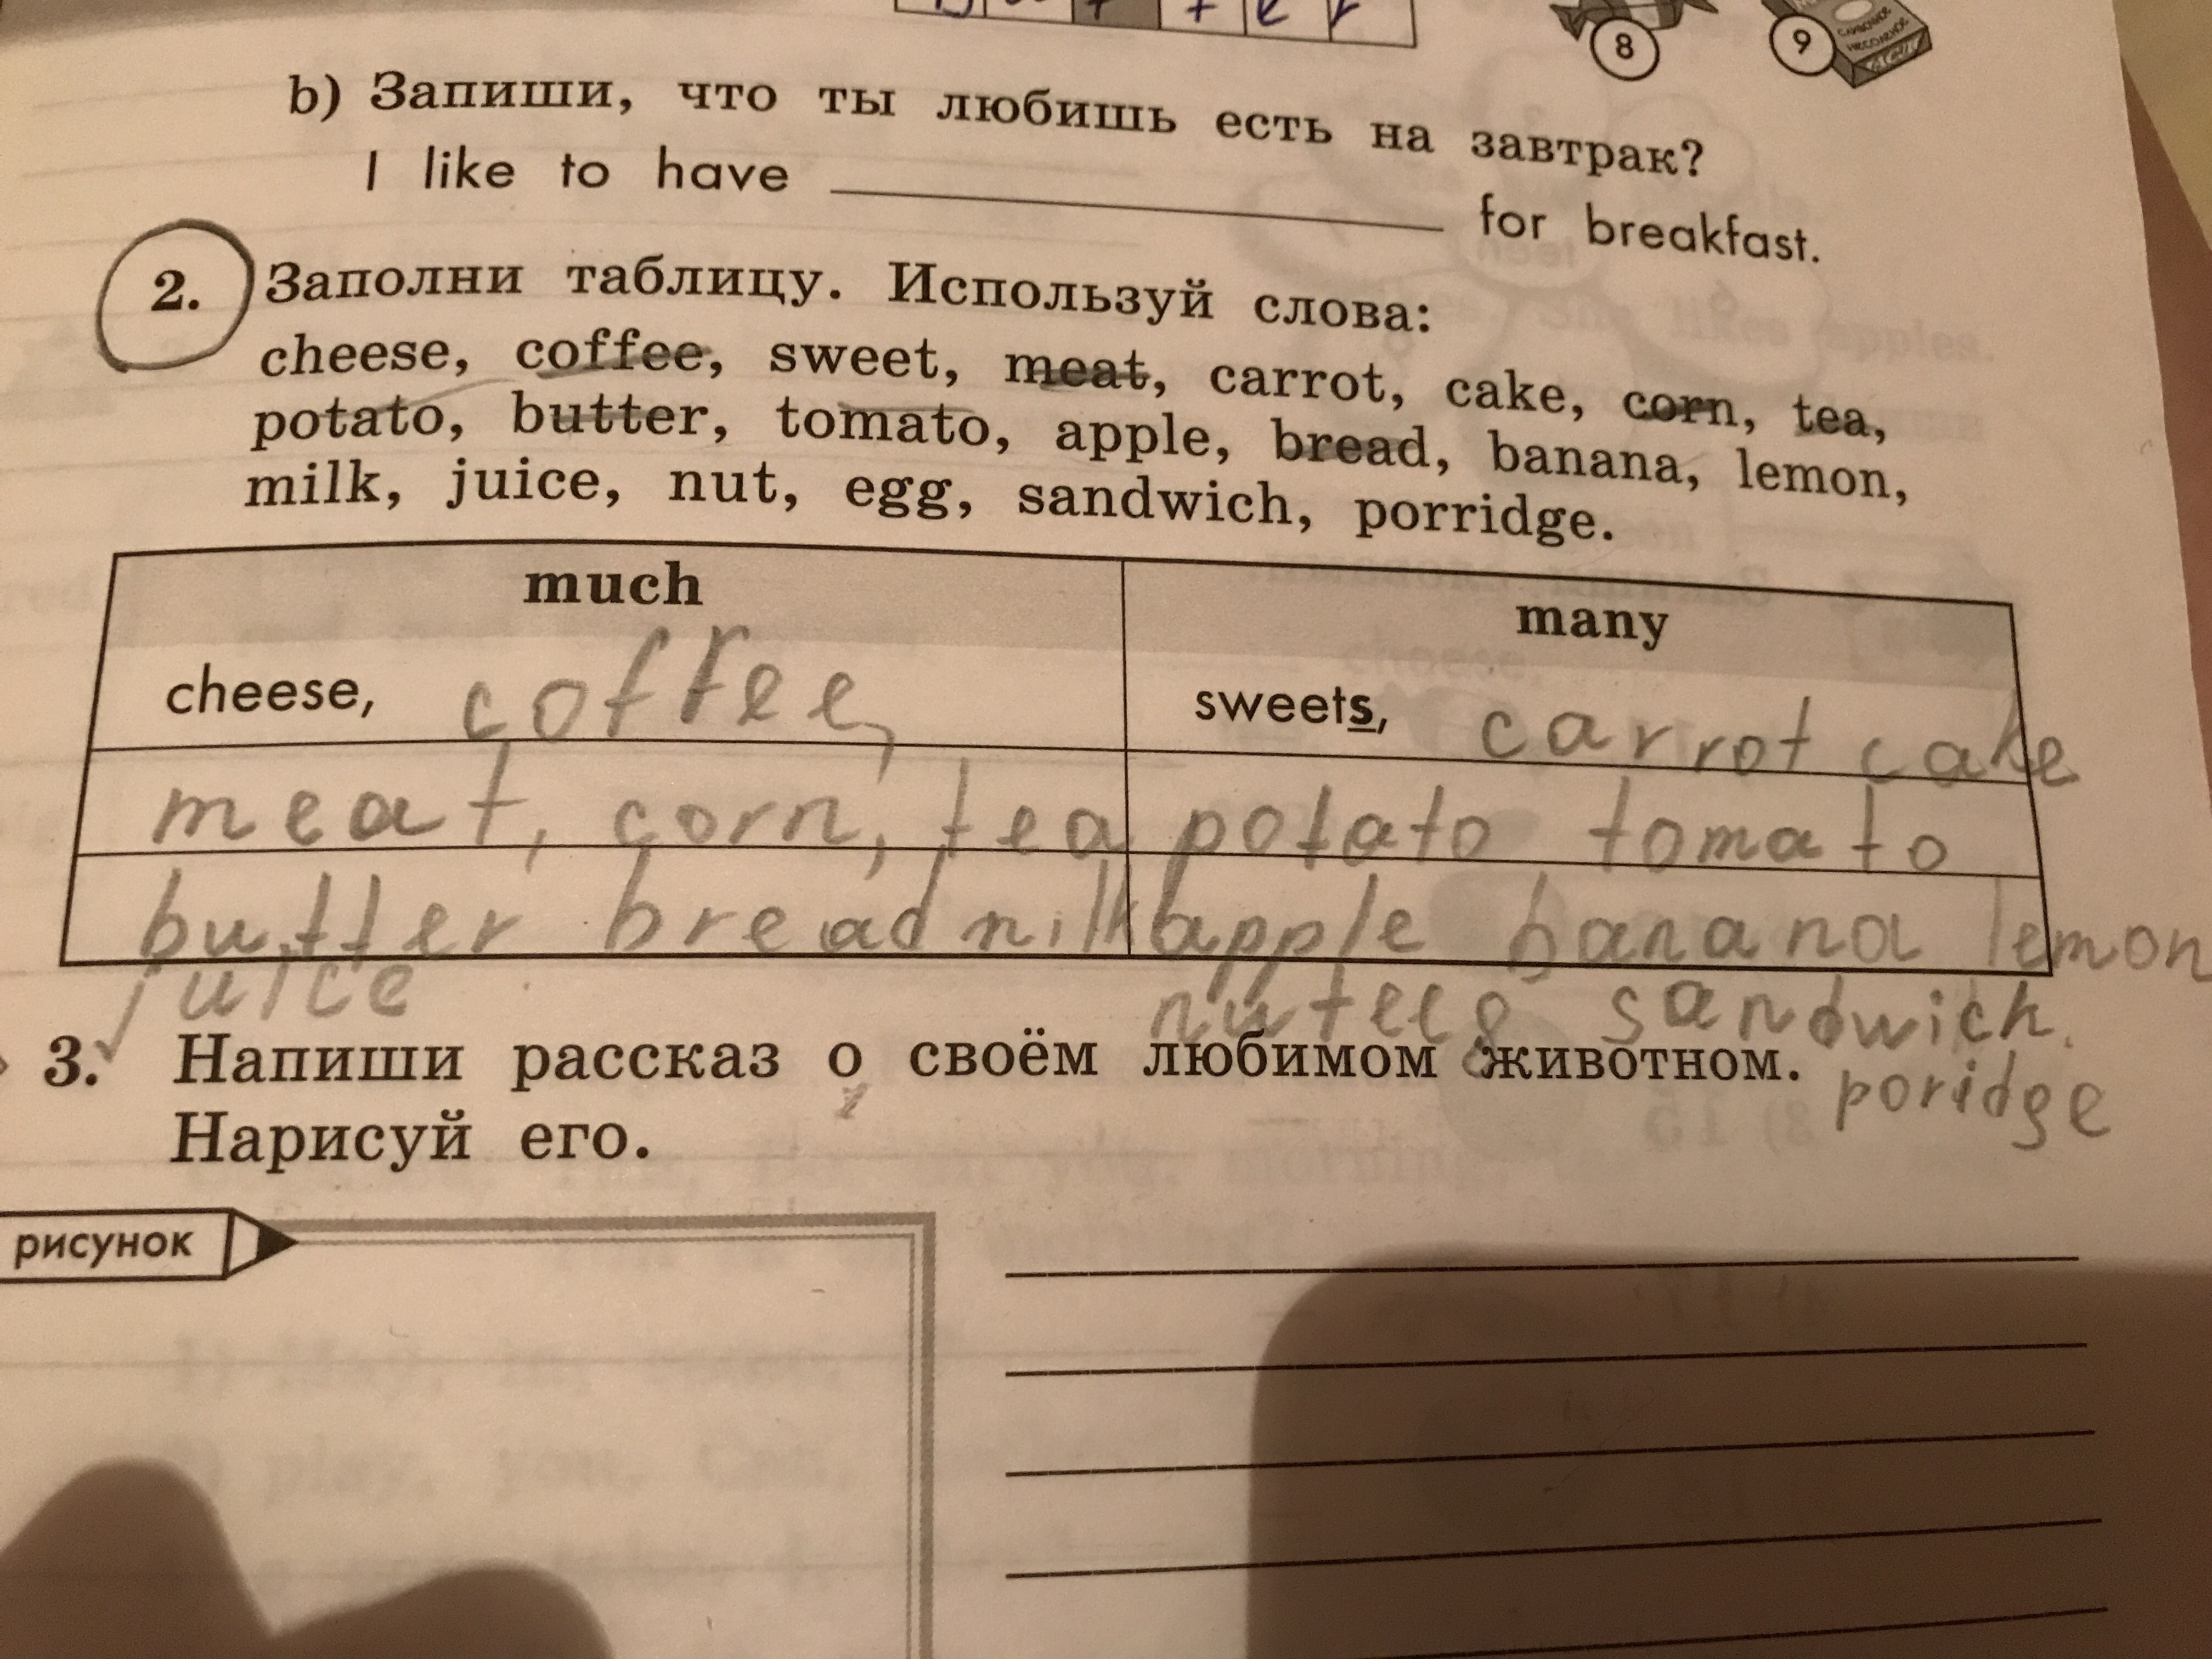 8 9
b) Запиши, что ты любишь есть на завтрак?
I like to have ____ for breakfast.
2. Заполни таблицу. Используй слова:
cheese, coffee, sweet, meat, carrot, cake, corn, tea,
potato, butter, tomato, apple, bread, banana, lemon,
milk, juice, nut, egg, sandwich, porridge.
much many
cheese, coffee, sweets, carrot cake
meat, corn, tea potato tomato
butter bread milk apple banana lemon
juice nut egg sandwich.
poridge
3. Напиши рассказ о своём любимом животном.
Нарисуй его.
рисунок